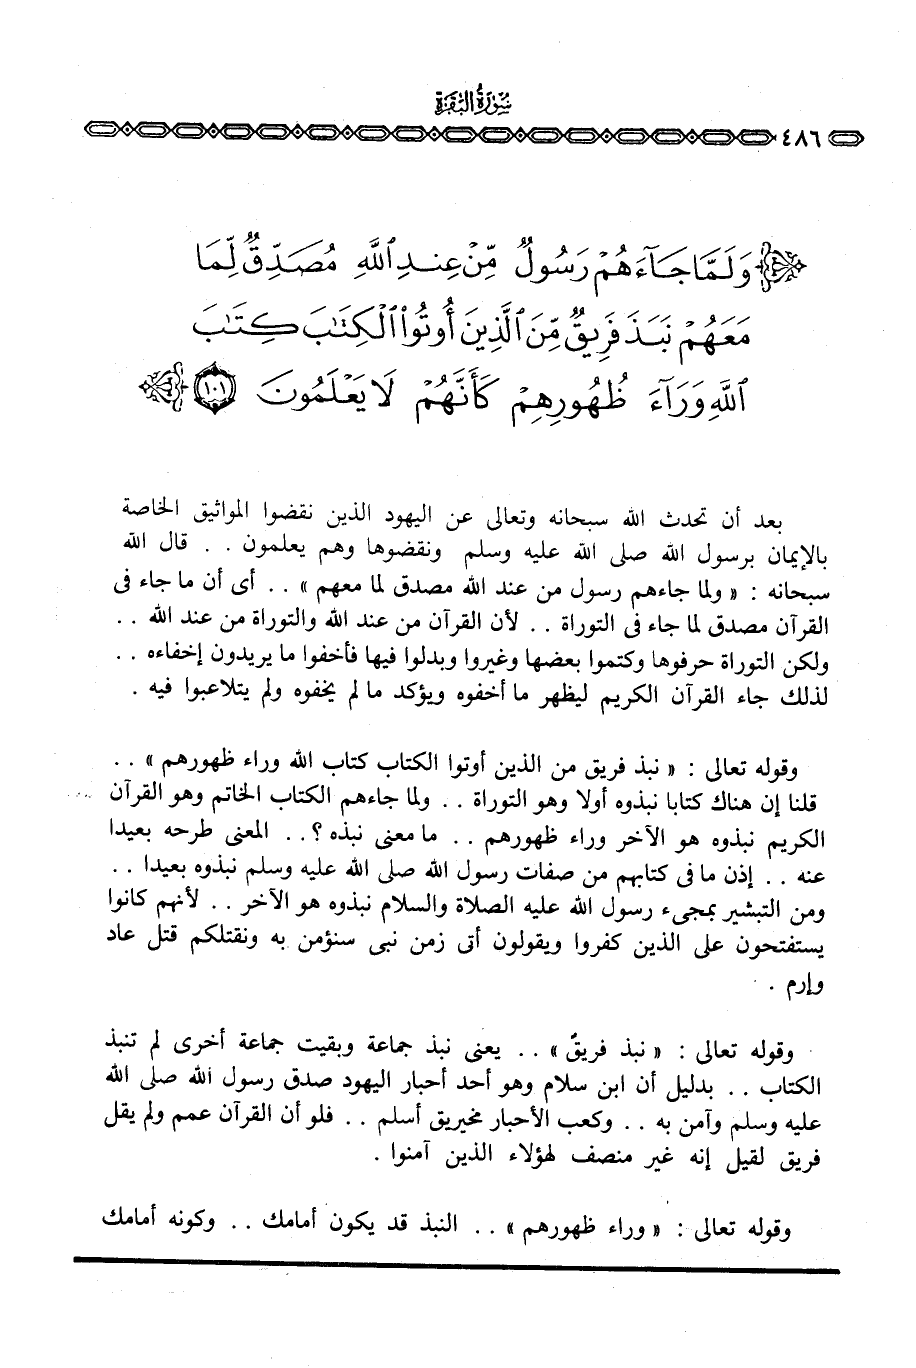 سُورَةُ البَقَرَة
٤٨٦
وَلَمَّا جَآءَهُمْ رَسُولٌ مِّنْ عِندِ ٱللَّهِ مُصَدِّقٌ لِّمَا
مَعَهُمْ نَبَذَ فَرِيقٌ مِّنَ ٱلَّذِينَ أُوتُوا۟ ٱلْكِتَٰبَ كِتَٰبَ
ٱللَّهِ وَرَآءَ ظُهُورِهِمْ كَأَنَّهُمْ لَا يَعْلَمُونَ ١٠١
بعد أن تحدث الله سبحانه وتعالى عن اليهود الذين نقضوا المواثيق الخاصة
بالإيمان برسول الله صلى الله عليه وسلم ونقضوها وهم يعلمون . . قال الله
سبحانه : « ولما جاءهم رسول من عند الله مصدق لما معهم » . . أى أن ما جاء فى
القرآن مصدق لما جاء فى التوراة . . لأن القرآن من عند الله والتوراة من عند الله . .
ولكن التوراة حرفوها وكتموا بعضها وغيروا وبدلوا فيها فأخفوا ما يريدون إخفاءه . .
لذلك جاء القرآن الكريم ليظهر ما أخفوه ويؤكد ما لم يخفوه ولم يتلاعبوا فيه .
وقوله تعالى : « نبذ فريق من الذين أوتوا الكتاب كتاب الله وراء ظهورهم » . .
قلنا إن هناك كتابا نبذوه أولا وهو التوراة . . ولما جاءهم الكتاب الخاتم وهو القرآن
الكريم نبذوه هو الآخر وراء ظهورهم . . ما معنى نبذه ؟ . . المعنى طرحه بعيدا
عنه . . إذن ما فى كتابهم من صفات رسول الله صلى الله عليه وسلم نبذوه بعيدا . .
ومن التبشير بمجىء رسول الله عليه الصلاة والسلام نبذوه هو الآخر . . لأنهم كانوا
يستفتحون على الذين كفروا ويقولون أتى زمن نبى سنؤمن به ونقتلكم قتل عاد
وإرم .
وقوله تعالى : « نبذ فريقٌ » . . يعنى نبذ جماعة وبقيت جماعة أخرى لم تنبذ
الكتاب . . بدليل أن ابن سلام وهو أحد أحبار اليهود صدق رسول الله صلى الله
عليه وسلم وآمن به . . وكعب الأحبار مخيريق أسلم . . فلو أن القرآن عمم ولم يقل
فريق لقيل إنه غير منصف لهؤلاء الذين آمنوا .
وقوله تعالى : « وراء ظهورهم » . . النبذ قد يكون أمامك . . وكونه أمامك